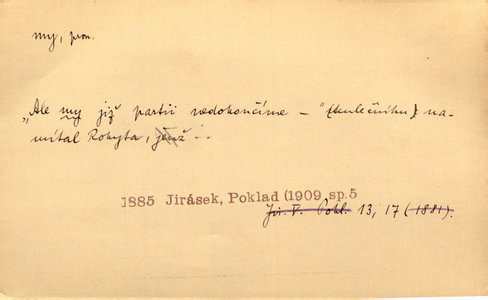 my, pron.
„Ale my již partii nedokončíme – " (kulečníku) na-
mítal Rokyta, jenž ..
1885 Jirásek, Poklad (1909 sp.5
Jir. V. Pokl. 13, 17 (1881).